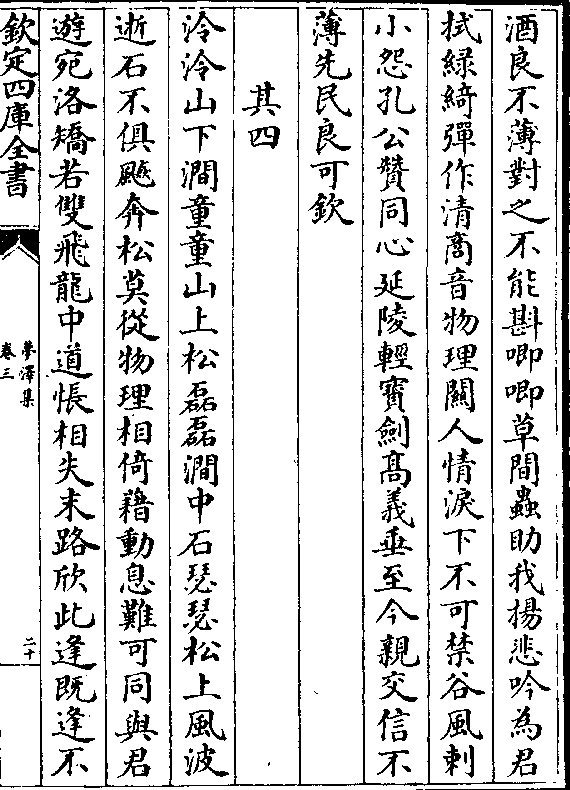 酒良不薄對之不能斟唧唧草間蟲助我揚悲吟為君
拭緑綺彈作清商音物理關人情淚下不可禁谷風刺
小怨孔公贊同心延陵輕寳劍髙義垂至今親交信不
薄先民良可欽
其四
泠泠山下澗童童山上松磊磊澗中石瑟瑟松上風波
逝石不俱飈奔松莫從物理相倚藉動息難可同與君
遊宛洛矯若雙飛龍中道悵相失末路欣此逢既逢不
欽定四庫全書
夢澤集
卷三
二十